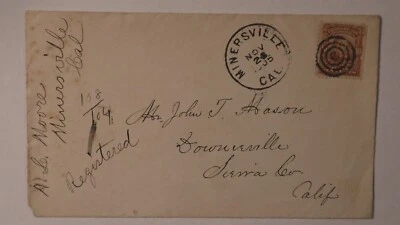 M. L. Moore
Minersville
Cal
MINERSVILLE
NOV
23
CAL.
Registered
Mr. John T. Mason
Downieville
Sierra Co
Calif